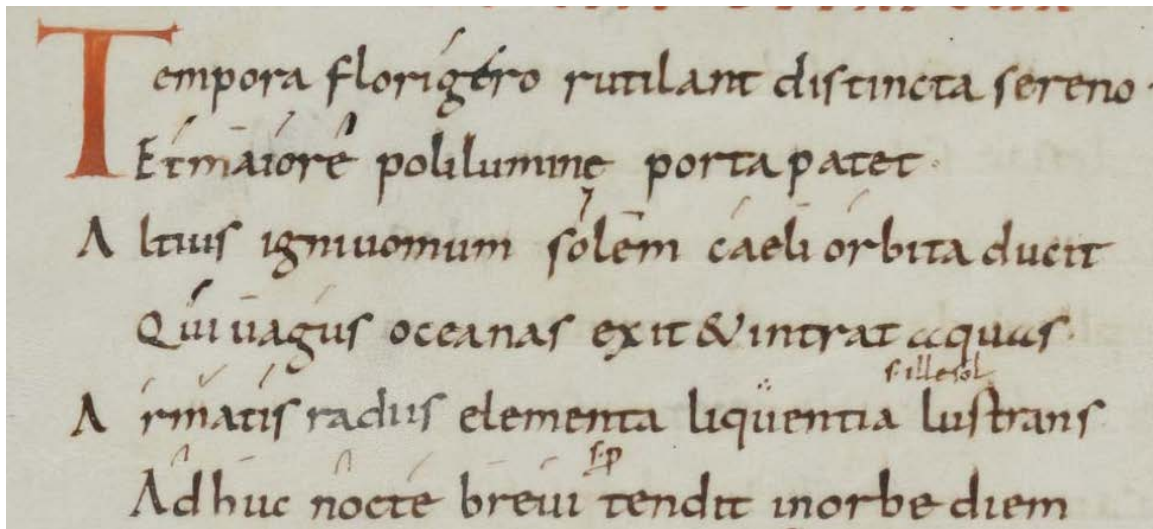 Tempora florigero rutilant distincta sereno.
Et maiore poli lumine porta patet.
Altius igniuomum solem caeli orbita ducit
Qui uagus oceanas exit & intrat aquas.
s. ille sol
Armatis radiis elementa liquentia lustrans.
s. p
Adhuc nocte breui tendit in orbe diem